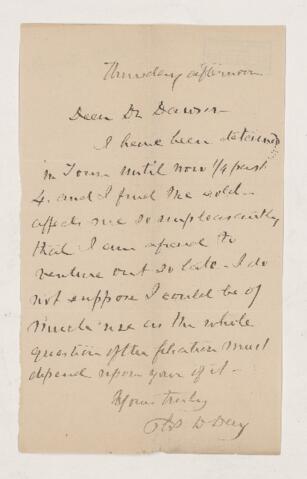 Thursday afternoon
Dear Dr Dawson -
I have been detained
in Town until now 1/4 past
4. and I find the cold
affects me so unpleasantly
that I am afraid to
venture out so late - I do
not suppose I could be of
much use as the whole
question of the filiation must
depend upon your of it -
Yours truly
D Day